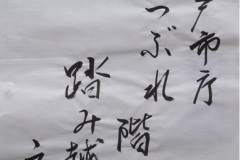 戸市庁
つぶれ
階
踏み越